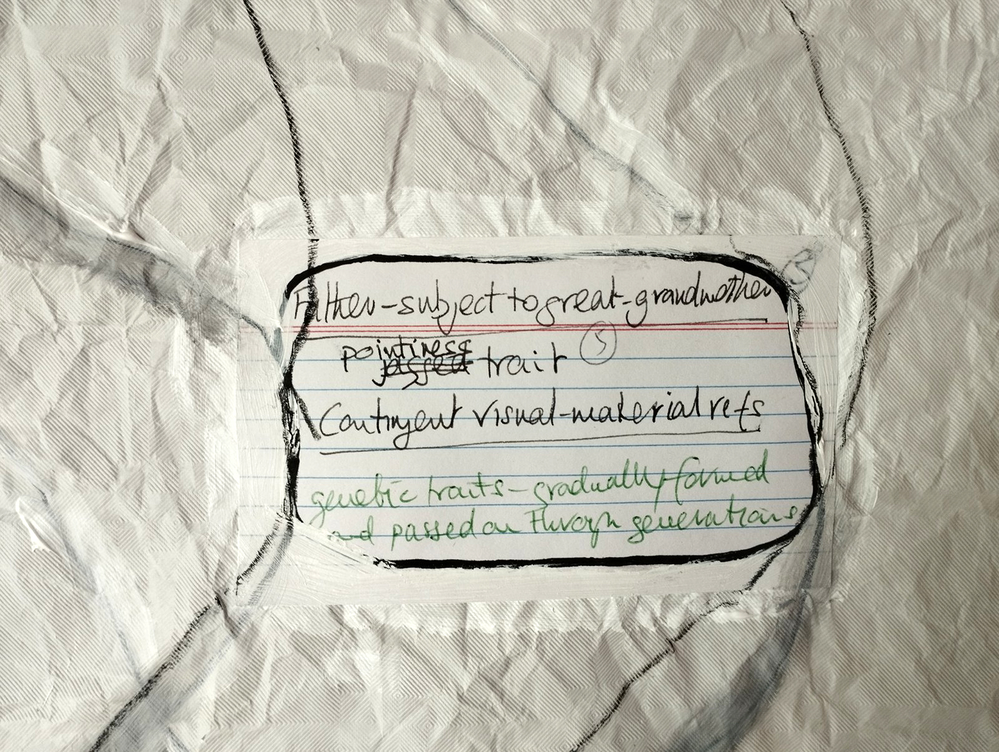 Father-subject to great-grandmother
pointiness
jagged trait (5)
Contingent visual-material refs
genetic traits - gradually formed
and passed on through generations